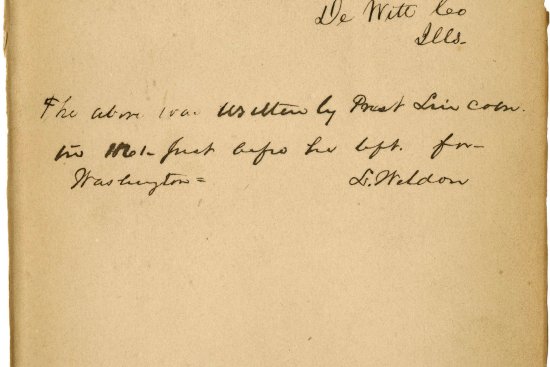 De Witt Co
Ills.
The above was written by Prest Lincoln.
in 1861 Just before he left. for
Washington =
L. Weldon